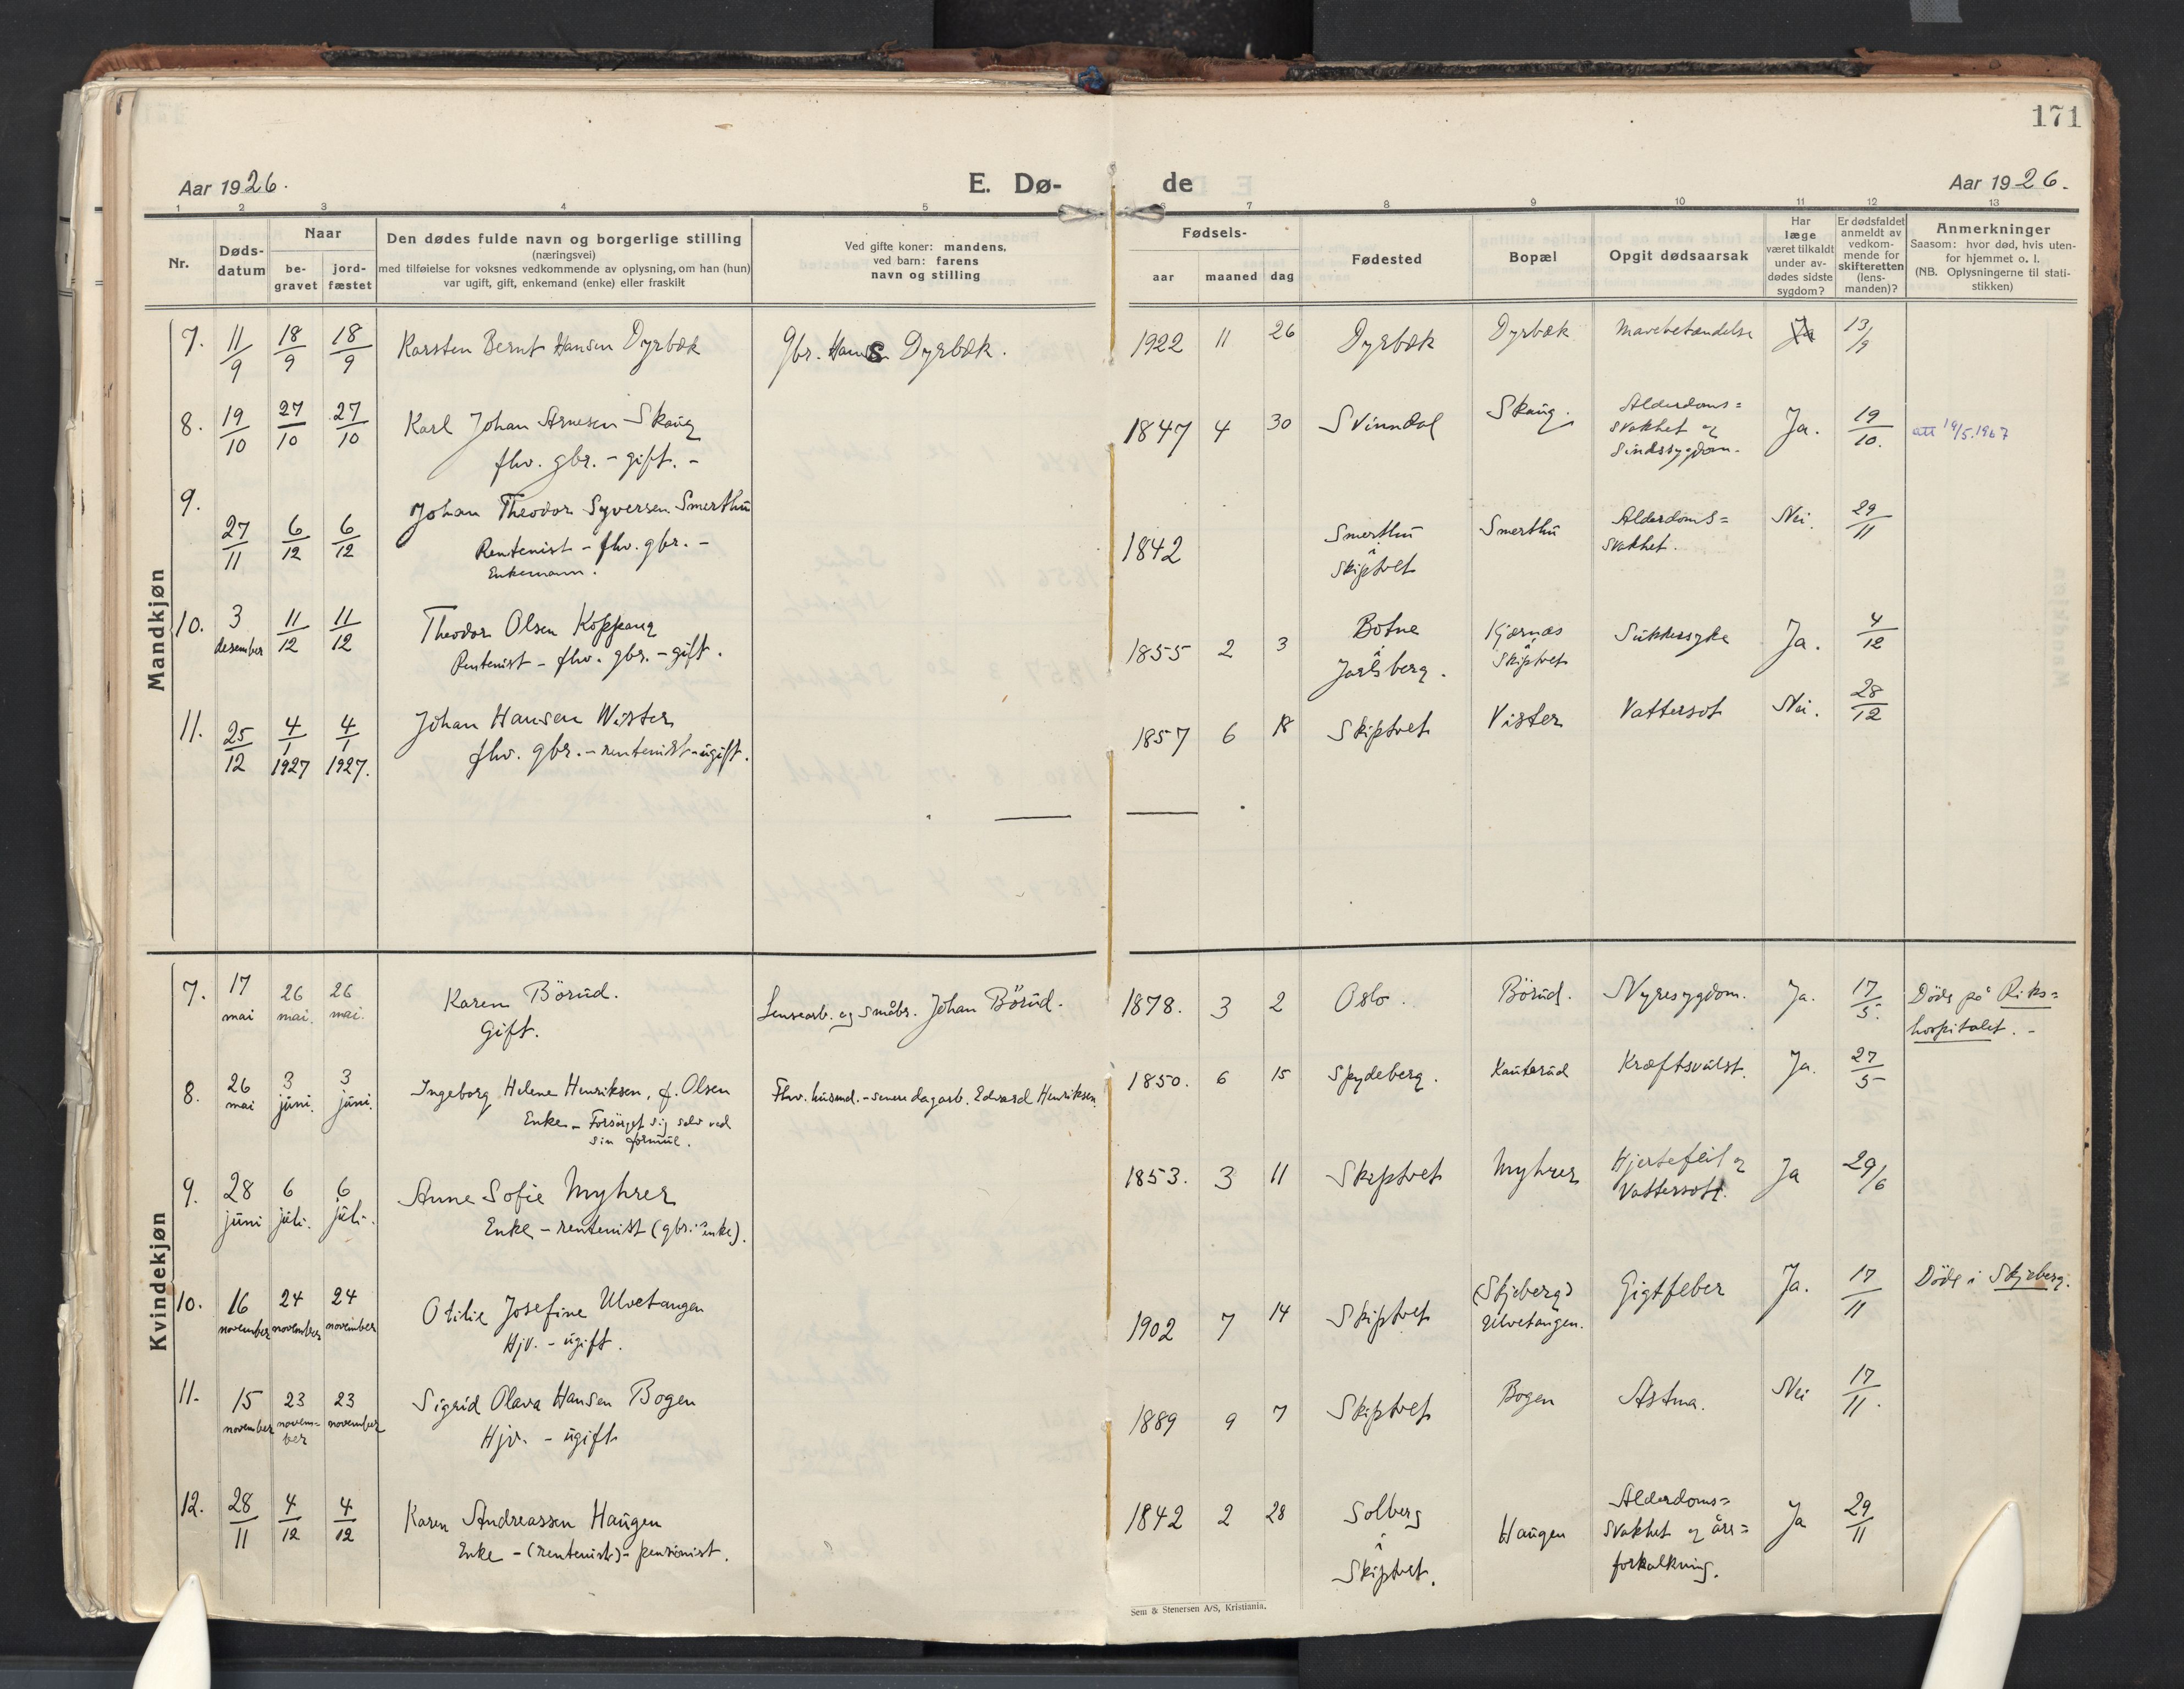 171
Aar 1926.
E. Dø-
de
Aar 1926.
1 2 3 4 5 6 7 8 9 10 11 12 13
Nr.
Døds-
datum
Naar
be-
gravet
jord-
fæstet
Den dødes fulde navn og borgerlige stilling
(næringsvei)
med tilføielse for voksnes vedkommende av oplysning, om han (hun)
var ugift, gift, enkemand (enke) eller fraskilt
Ved gifte koner: mandens,
ved barn: farens
navn og stilling
Fødsels-
aar maaned dag
Fødested
Bopæl
Opgit dødsaarsak
Har
læge
været tilkaldt
under av-
dødes sidste
sygdom?
Er dødsfaldet
anmeldt av
vedkom-
mende for
skifteretten
(lens-
manden)?
Anmerkninger
Saasom: hvor død, hvis uten-
for hjemmet o. l.
(NB. Oplysningerne til stati-
stikken)
Mandkjøn
7. 11/9 18/9 18/9 Karsten Bernt Hansen Dyrbæk Gbr. Hans Dyrbæk. 1922 11 26 Dyrbæk Dyrbæk Mavebetændelse Ja 13/9
8. 19/10 27/10 27/10 Karl Johan Arnesen Skaug 1847 4 30 Svinndal Skaug. Alderdoms= Ja. 19/10. att 19/5.1967
fhv. gbr. - gift. - svakhet og
Sindssygdom.
9. 27/11 6/12 6/12 Johan Theodor Syversen Smerthu 1842 Smerthu Smerthu Alderdoms= Nei. 29/11
Rentenist - fhv. gbr. - i svakhet.
Enkemann. Skiptvet
10. 3 11/12 11/12 Theodor Olsen Koppang 1855 2 3 Botne Kjærnæs Sukkersyke Ja. 4/12
desember Rentenist - fhv. gbr. - gift. i i
Jarlsberg. Skiptvet
11. 25/12 4/1 4/1 Johan Hansen Wister 1857 6 18 Skiptvet Vister Vattersot Nei. 28/12
1927 1927. fhv. gbr. - rentenist - ugift.
Kvindekjøn
7. 17 26 26 Karen Börud. Lensearb. og småbr. Johan Börud. 1878. 3 2 Oslo. Börud. Nyresygdom. Ja. 17/5. Döde på Riks=
mai mai. mai. Gift. hospitalet. -
8. 26 3 3 Ingeborg Helene Henriksen, f. Olsen Fhv. husmd. - senere dagarb. Edvard Henriksen. 1850. 6 15 Spydeberg. Kauterud Kræftsvulst. Ja. 27/5
mai juni. juni. Enke - Forsörget sig selv ved
sin formue.
9. 28 6 6 Anne Sofie Myhrer 1853. 3 11 Skiptvet Myhrer Hjertefeil og Ja 29/6
juni juli. juli. Enke - rentenist (gbr.'s enke). Vattersot.
10. 16 24 24 Otilie Josefine Ulvetangen 1902 7 14 Skiptvet (Skjeberg) Gigtfeber Ja. 17/11 Döde i Skjeberg.
november november november Hjv. - ugift. Ulvetangen.
11. 15 23 23 Sigrid Olava Hansen Bogen 1889 9 7 Skiptvet Bogen Astma. Nei 17/11.
november novem= november Hjv. - ugift
ber
12. 28/11 4/12 4/12 Karen Andreassen Haugen 1842 2 28 Solberg Haugen Alderdoms= Ja 29/11
Enke - (rentenist) - pensionist. i svakhet og åre=
Skiptvet. forkalkning.
Sem & Stenersen A/S, Kristiania.